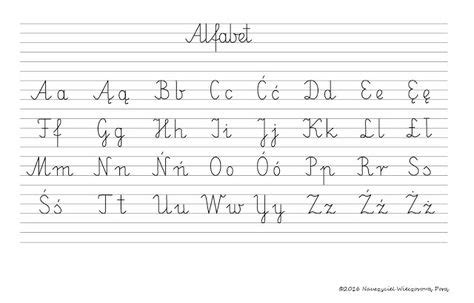 Alfabet
Aa Ąą Bb Cc Ćć Dd Ee Ęę
Ff Gg Hh Ii Jj Kk Ll Łł
Mm Nn Ńń Oo Óó Pp Rr Ss
Śś Tt Uu Ww Yy Zz Źź Żż
©2016 Nauczyciel Wieczorową Porą